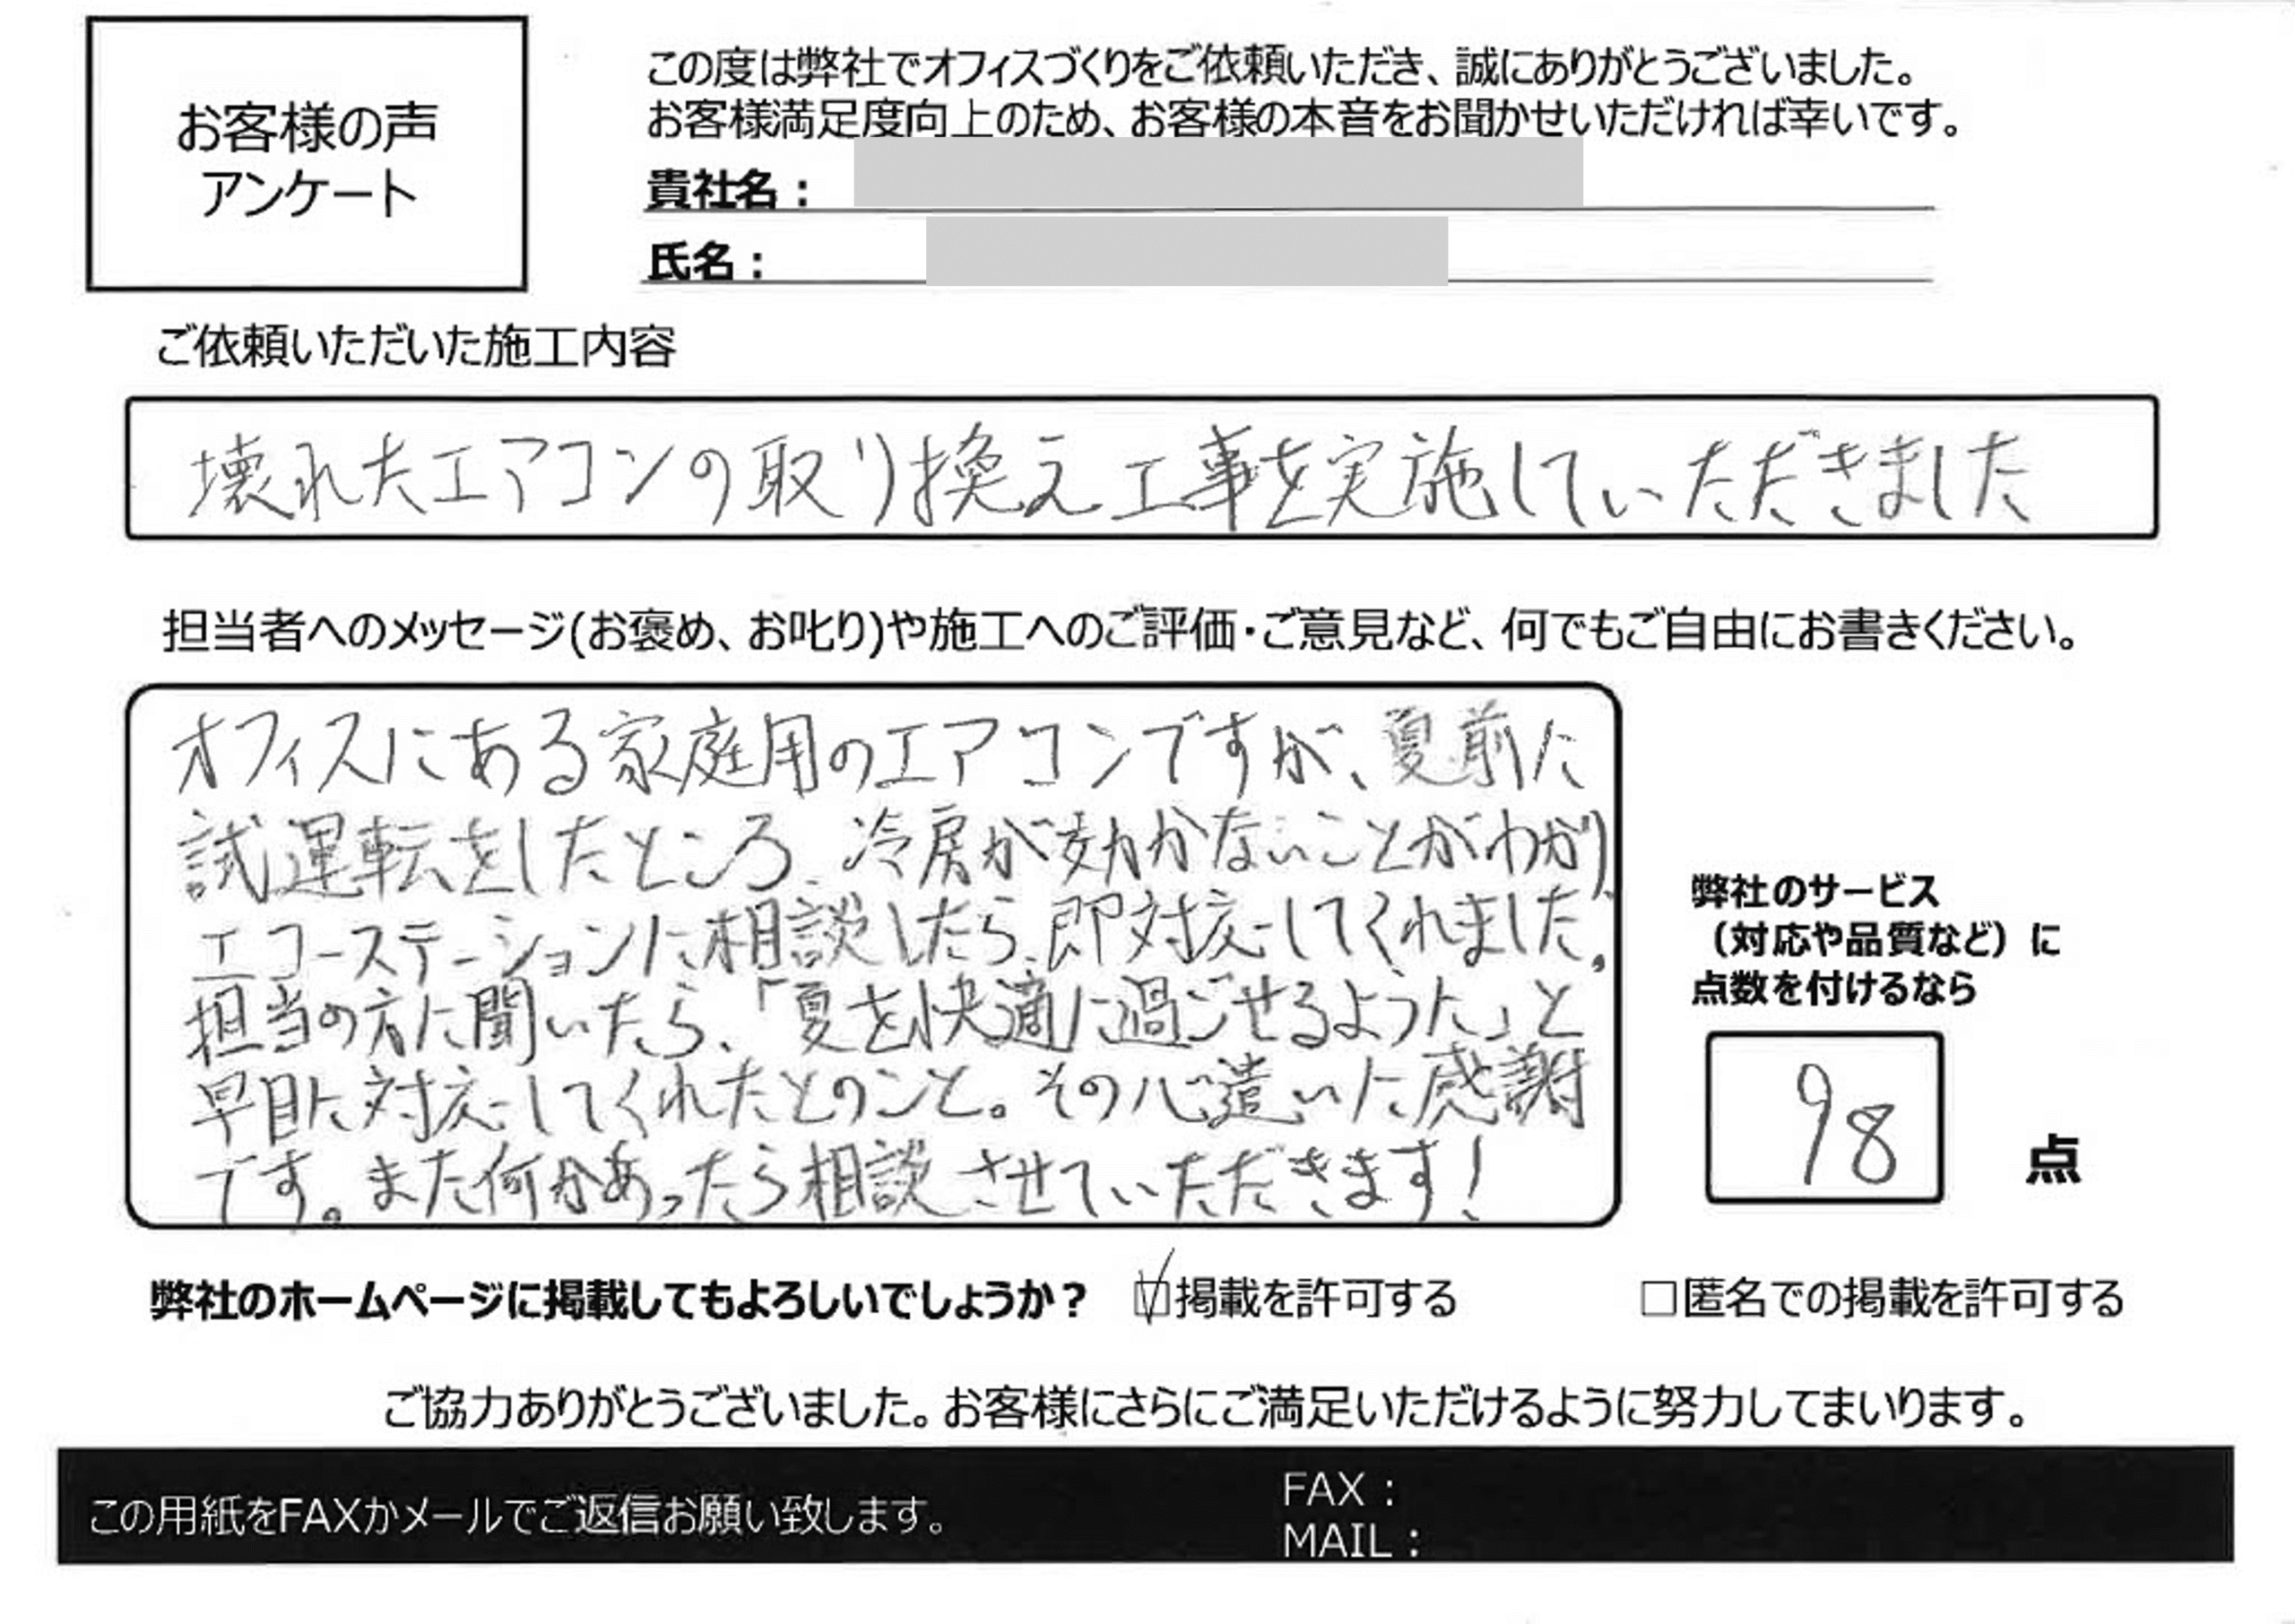 お客様の声
アンケート
この度は弊社でオフィスづくりをご依頼いただき、誠にありがとうございました。
お客様満足度向上のため、お客様の本音をお聞かせいただければ幸いです。
貴社名：
氏名：
ご依頼いただいた施工内容
壊れたエアコンの取り換え工事を実施していただきました
担当者へのメッセージ(お褒め、お叱り)や施工へのご評価・ご意見など、何でもご自由にお書きください。
オフィスにある家庭用のエアコンですが、夏前に
試運転をしたところ、冷房が効かないことがわかり、
エコーステーションに相談したら、即対応してくれました。
担当の方に聞いたら、「夏を快適に過ごせるように」と
早目に対応してくれたとのこと。その心遣いに感謝
です。また何かあったら相談させていただきます！
弊社のサービス
（対応や品質など）に
点数を付けるなら
98 点
弊社のホームページに掲載してもよろしいでしょうか？ ☑掲載を許可する □匿名での掲載を許可する
ご協力ありがとうございました。お客様にさらにご満足いただけるように努力してまいります。
この用紙をFAXかメールでご返信お願い致します。
FAX：
MAIL：